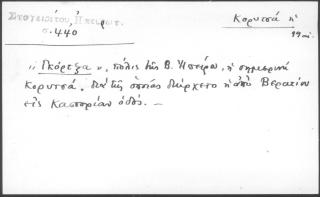 Στοιχεῖα τοῦ Ἠπειρωτ.
σ. 440
Κορυτσά ἡ
19 αἰ.
"Γκόρτζα", πόλις τῆς Β. Ἠπείρου, ἡ σημερινή
Κορυτσά, διὰ τῆς ὁποίας διήρχετο ἡ ἀπὸ Βερατίου
εἰς Καστορίαν ὁδός. —